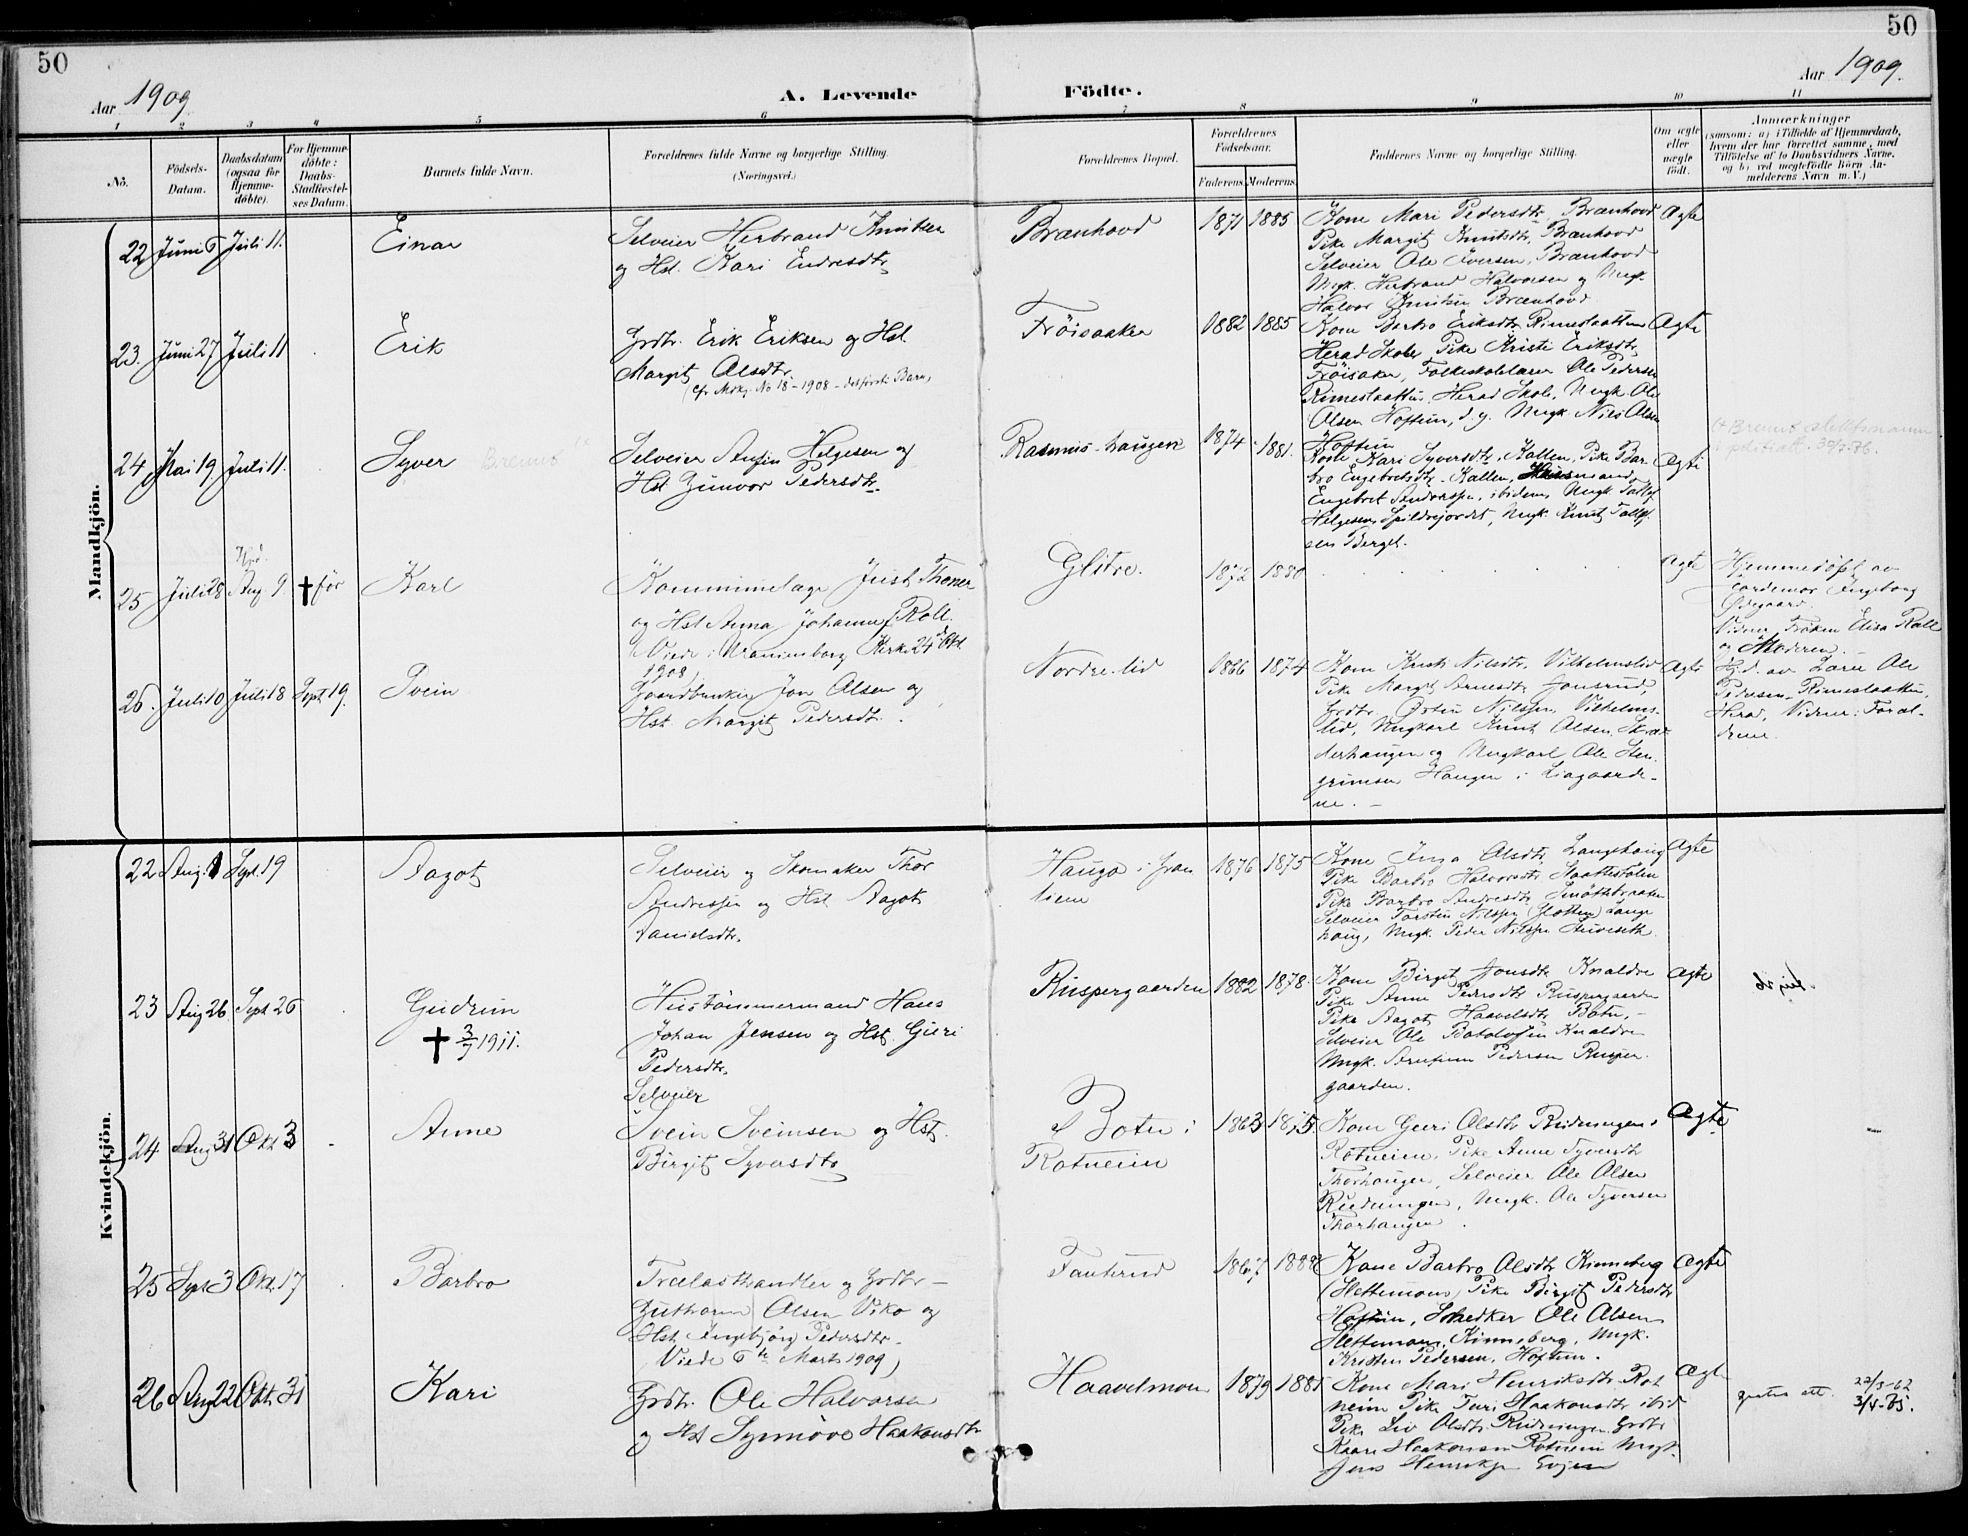 50
50
Aar 1909
A. Levende Födte.
Aar 1909.
1 2 3 4 5 6 7 8 9 10 11
Nö.
Födsels-Datum.
Daabsdatum (ogsaa för Hjemme-döbte).
For Hjemme-döbte: Daabs-Stadfæstel-ses Datum.
Barnets fulde Navn.
Forældrenes fulde Navne og borgerlige Stilling.
(Næringsvei.)
Forældrenes Bopæl.
Forældrenes Födselsaar.
Faderens. Moderens.
Faddernes Navne og borgerlige Stilling.
Om ægte eller uægte födt.
Anmærkninger
(saasom: a) i Tilfælde af Hjemmedaab,
hvem der har forrettet samme, med
Tilföielse af to Daabsvidners Navne,
og b) ved uegtefödte Börn An-
melderens Navn m. V.)
Mandkjön.
22 Juni 6 Juli 11.
Einar
Selveier Herbrand Knutsen
og Hst. Kari Endresdtr.
Brænhovd
1871 1885
Kone Mari Pedersdtr. Brænhovd
Pike Margit Knutsdtr. Brænhovd
Selveier Ole Iversen, Brænhovd
Ungk. Herbrand Halvorsen og Ungk.
Halvor Knutsen Brænhovd
Ægte
23. Juni 27 Juli 11
Erik
Grdbr. Erik Eriksen og Hst.
Margit Olsdtr.
(cfr Mdkj. No 18 - 1908 - det förste Barn)
Fröisaaker
1882 1885
Kone Barbro Eriksdtr. Rimeslaatten
Herad Skole, Pike Kristi Eriksdtr.
Fröisaker, Folkeskolelærer Ole Pedersen
Rimeslaatten, Herad Skole, Ungk. Ole
Olsen Hoftun, d.y. Ungk. Nils Olsen
Hoftun
Ægte
24 Mai 19. Juli 11.
Syver
Selveier Anfin Helgesen og
Hst. Gunvor Pedersdtr.
Rasmus-haugen
1874 1881.
Kone Kari Syversdtr. Kallen, Pike Bar-
bro Engebretsdtr. Kallen,
Engebret Andersen, ibidem, Ungk.
Helgesen Spildrejordet, Ungk. Knut
sen Berget.
Ægte
25 Juli 28 Hjd. Aug 9. † för
Karl
Kommunelæge Just Thoner
og Hst Anna Johanne f. Roll.
Viede i Uranienborg Kirke 24de Okt.
1908)
Glitre.
1872 1880
Ægte
Hjemmedöbt av
Jordemor Ingeborg
Ödegaard.
Vidner, Fröken Elisa Roll
og Moderen.
26. Juli 10 Juli 18 Sept 19.
Svein
Gaardbruker Jon Olsen og
Hst. Margit Pedersdtr.
Nordre-lid
1866 1874
Kone Kristi Nilsdtr. Vilhelmslid
Pike Margit Arnesdtr. Jonsrud,
Grdbr. Östen Nilssen, Vilhelms-
lid, Ungkarl Knut Olsen,
derhaugen og Ungkarl Ole Sten-
grimsen Haugen i Liagaarde-
ne. -
Ægte
Hjd. av Lærer Ole
Pedersen Rimeslaatten,
Herad, Vidner: Foræl-
drene.
Kvindekjön.
22 Aug. 1 Sept. 19
Aagot
Selveier og Skomaker Thor
Andressen og Hst. Aagot
Danielsdtr.
Hauga i Gran
liem
1876 1875
Kone Inga Olsdtr. Langehaug
Pike Barbro Halvorsdtr. Slaattestölen
Pike Barbro Andresdtr. Smöttebraaten
Selveier Torstein Nilssen (Glotten) Lange
haug, Ungk. Peder Nilssen
Ægte
23 Aug 26. Sept 26
Gudrun
† 3/7 1911.
Hustömmermand Hans
Johan Jensen og Hst. Guri
Pedersdtr.
Ruspergaarden
1882 1878.
Kone Birgit Jonsdtr Knaldre
Pike Anne Pedersdtr Ruspergaarden
Pike Aagot Haavelsdtr Botn, -
Selveier Ole Botolvsen Knaldre
Ungk. Pedersen Rusper-
gaarden.
Ægte
24 Aug 31 Okt 3
Anne
Selveier
Svein Sveinsen og Hst.
Birgit Syversdtr
Botn i
Rotneim
1863
Kone Guri Olsdtr Rudningen i
Rotneim. Pike Anne Syversdtr
Thorhaugen, Selveier Ole Olsen
Rudningen, Ungk. Ole Syversen
Thorhaugen.
Ægte
25 Sept 3 Okt. 17
Barbro
Trælasthandler og Grdbr -
Guttorm Olsen Viko og
Hst. Ingebjörg Pedersdtr.
(Viede 6te Marts 1909)
Fauterud
1867
Kone Barbro Olsdtr Kinneberg
(Slettemoen) Pike Birgit Pedersdtr
Hoftun, Snedker Ole Olsen
Slettemoen, Kinneberg, Ungk.
Kristen Pedersen, Hoftun.
Ægte
26 Aug 22 Okt. 31
Kari
Grdbr. Ole Halvorsen
og Hst Synnöve Haakonsdtr
Haavelmoen
1879 1881
Kone Mari Henriksdtr. Rot
neim Pike Turi Haakonsdtr ibid
Pike Liv Olsdtr. Rudningen Grdbr
Kaare Haakonsen Rotneim Ungk.
Jens Henriksen Evjen
Ægte
gratis att. 22/3-62